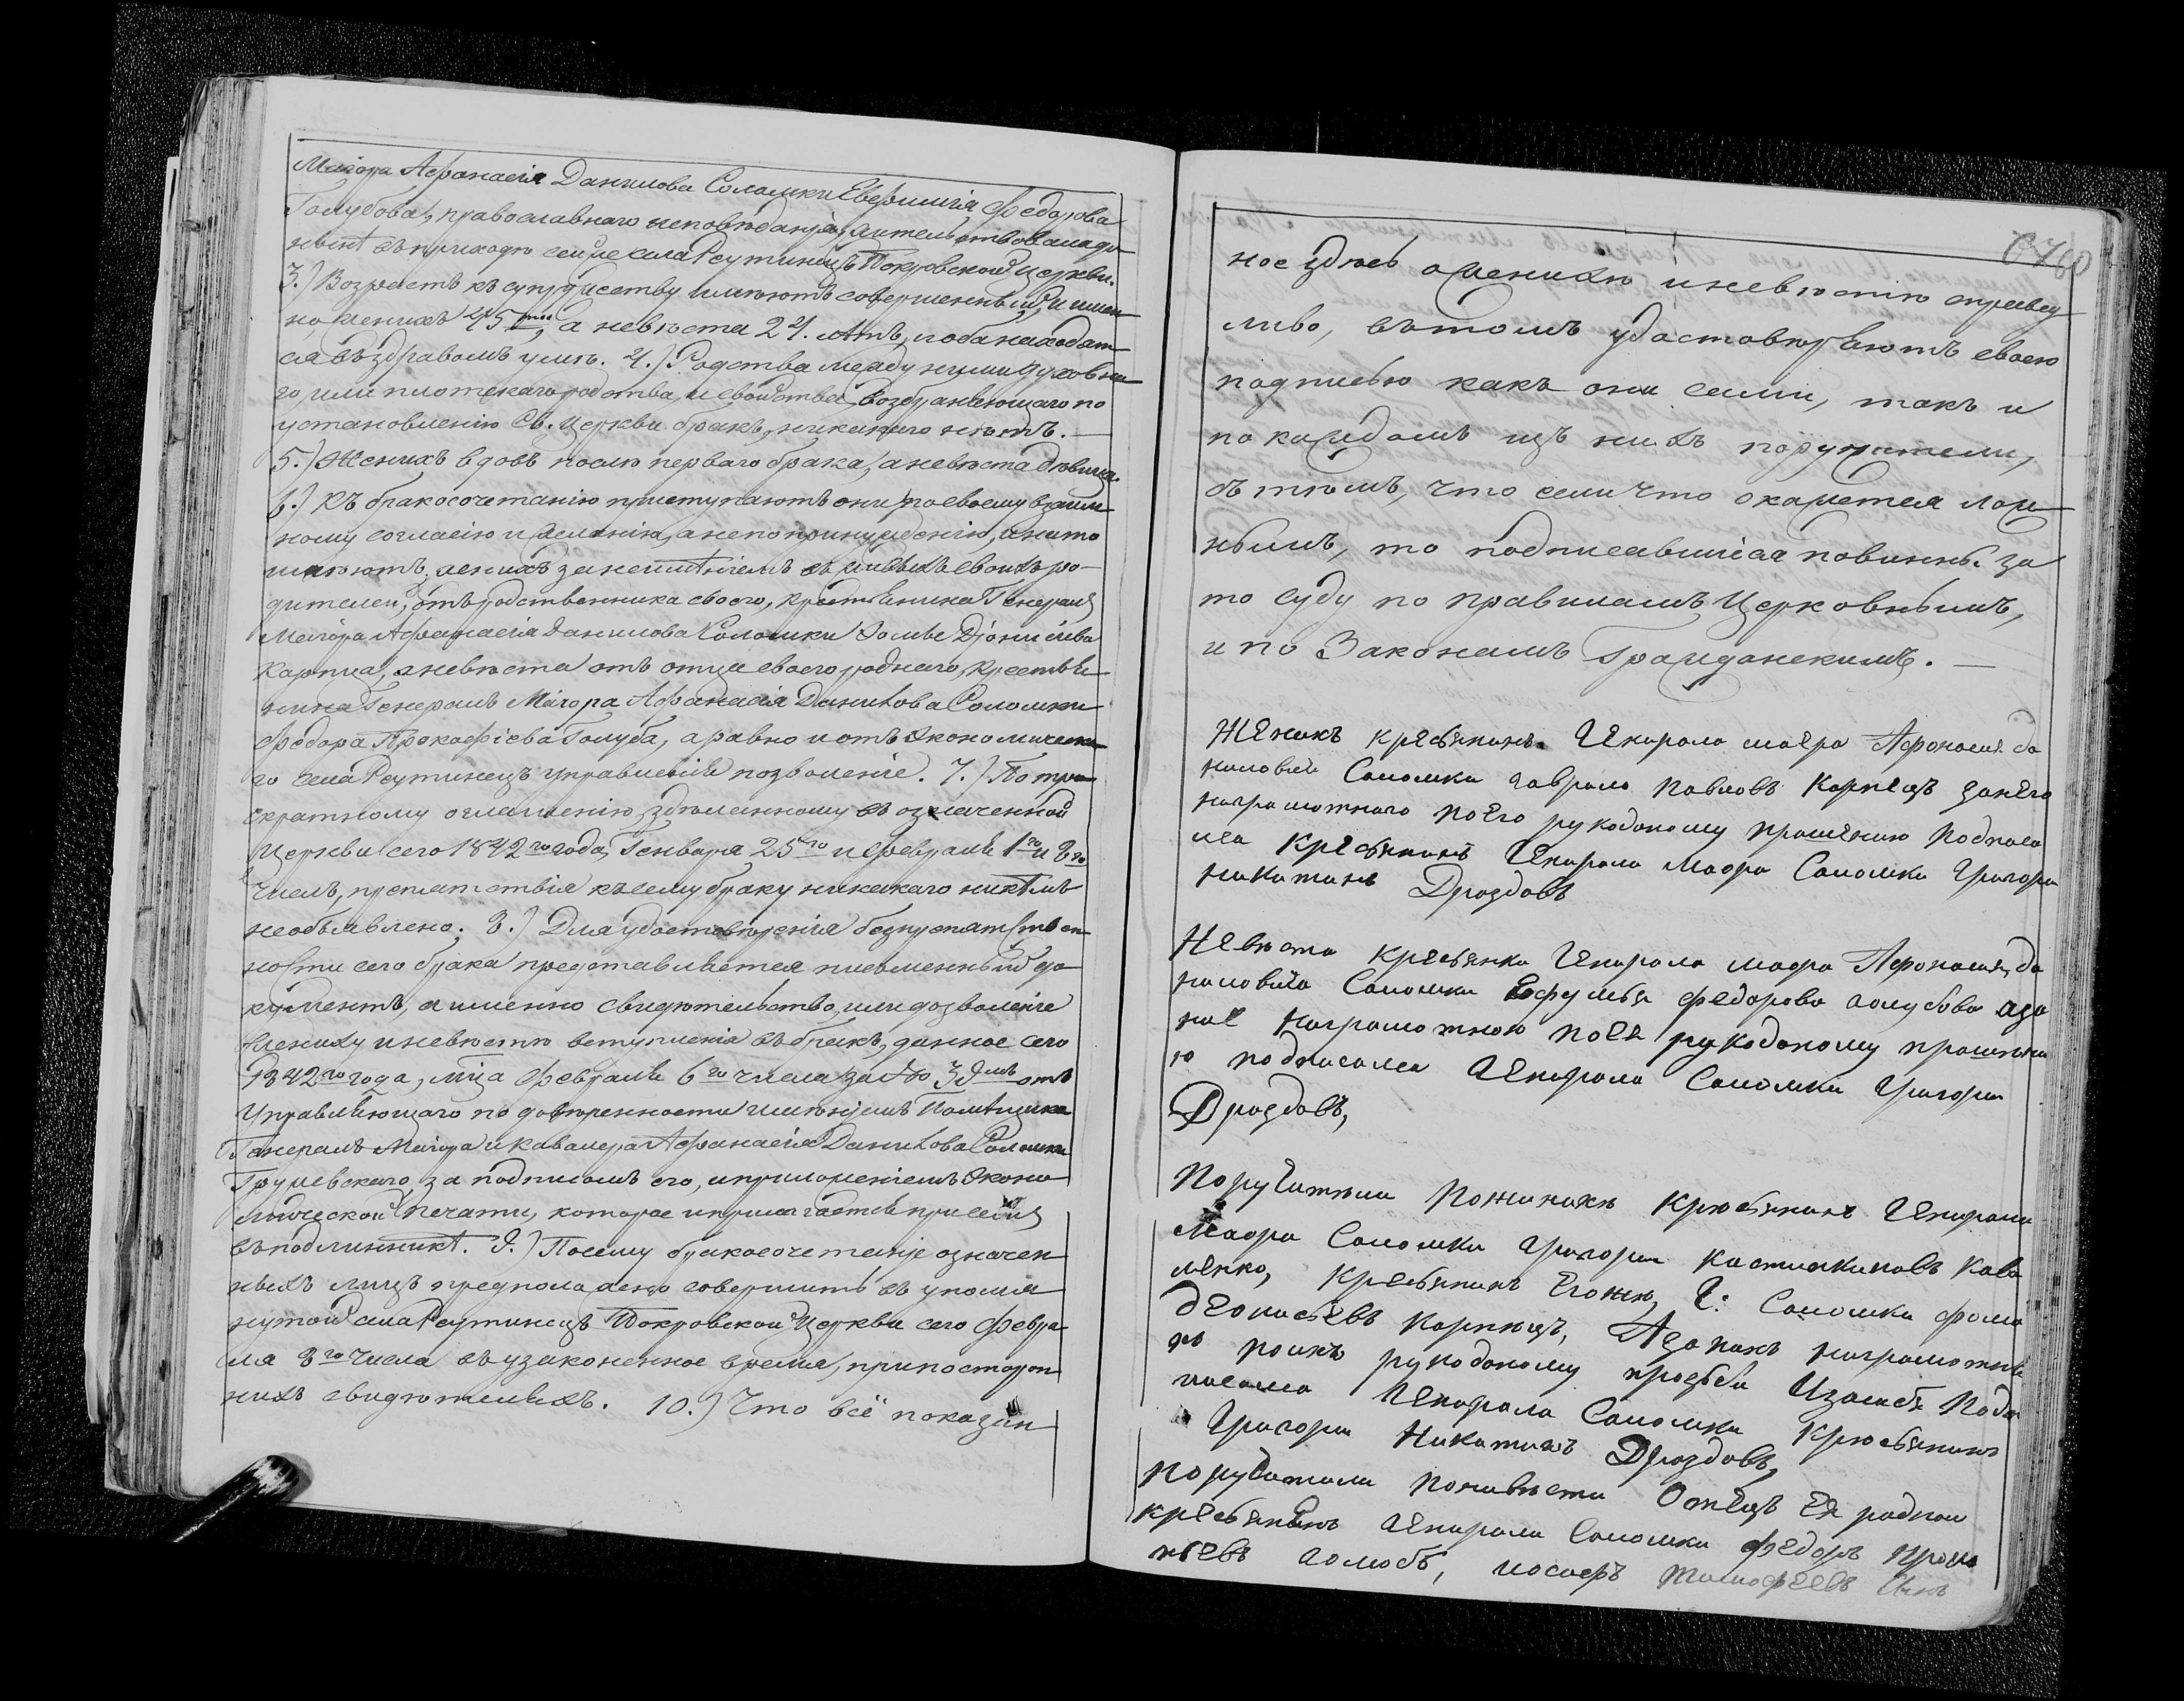 Маіора Афанасія Данилова Соломки Евфимія Федорова
Голубова, православнаго исповѣданія, жительствовала до
нынѣ въ приходѣ сей же села Реутинецъ Покровской церкви.
3.) Возрастъ къ супружеству имѣютъ совершенный, и имен
но женихъ 45ти, а невѣста 24. лѣтъ, и оба находят
ся въ здравомъ умѣ. 4.) Родства между ними духовна
го, или плотскаго родства, и свойства возбраняющаго по
установленію Св. Церкви бракъ, никакого нѣтъ.
5.) Женихъ вдовъ послѣ перваго брака, а невѣста дѣвица.
6.) Къ бракосочетанію приступаютъ они по своему взаим
ному согласію и желанію, а не по принужденію, и на то
имѣютъ, женихъ за неимѣніемъ въ живыхъ своихъ ро-
дителей, отъ родственника своего, крестьянина Генералъ
Маіора Афанасія Данилова Соломки Фомы Діонисіева
Карпца, а невѣста отъ отца своего роднаго, крестья-
нина Генералъ Маіора Афанасія Данилова Соломки
Федора Прокофіева Голуба, а равно и отъ Экономическа
го села Реутинецъ Управленія позволеніе. 7.) По тро-
екратному оглашенію, здѣланному въ означенной
Церкви сего 1842го года, Генваря 25го и Февраля 1го и 8го
числъ, препятствія къ сему браку никакого никѣмъ
необъявлено. 8.) Для удостовѣренія безпрепятствен-
ности сего брака представляется письменный до-
кументъ, а именно свидѣтельство, или дозволеніе
жениху и невѣстѣ вступленія въ бракъ, данное сего
1842го года, мѣца Февраля 6го числа за № 38мъ отъ
Управляющаго по довѣренности имѣніемъ Помѣщика
Генералъ Маіора и кавалера Афанасія Данилова Соломки
Грушевскаго, за подписомъ его, и приложеніемъ Эконо-
мической печати, которое и прилагается при семъ
въ подлинникѣ. 9.) Посему бракосочетаніе означен
ныхъ лицъ предположено совершить въ упомя
нутой села Реутинецъ Покровской Церкви сего Февра
ля 8го числа въ узаконенное время, при посторон
нихъ свидѣтеляхъ. 10.) Что всё показан
60
ное здѣсь о женихѣ и невѣстѣ справед
ливо, въ томъ удостовѣряютъ своею
подписью какъ они сами, такъ и
по каждомъ изъ нихъ поручители,
съ тѣмъ, что если что окажется лож
нымъ, то подписавшіеся повинны за
то суду по правиламъ Церковнымъ,
и по Законамъ Гражданскимъ.
Женихъ кресянинъ Генарала маера Афонасия да
ниловича Соломки Гаврило Павловъ Карпецъ занего
награмотнаго поего рукоданому прошению подписа
лса Кресянинъ Генарала Маора Соломки Григори
Никитинъ Дроздовъ
Невѣста кресянка Генарала маора Афонасия, да
ниловича Соломки Ефумья федорова голубова аза
нее награмотною поея рукоданому прошени
ю подписался Генарала Соломки Григори
Дроздовъ,
Поручители Пожинихѣ Крюсянинъ Генарала
Маора Соломки Григори Костянтиновъ Кова
ленко, Кресянинъ Егожю, Г: Соломки фома
деонисьевъ Карпецъ, Азаних награмотны
хъ поихъ рукоданому прозьби Изасебя Подп
исалса Генарала Соломки Крюсянинъ
Григори Никитинъ Дроздовъ,
Поручители Поневѣсти Отецъ Ея родной
кресянинъ Генарала Соломки Федоръ Проко
пьевъ голюбъ, иосифъ тимофеевъ